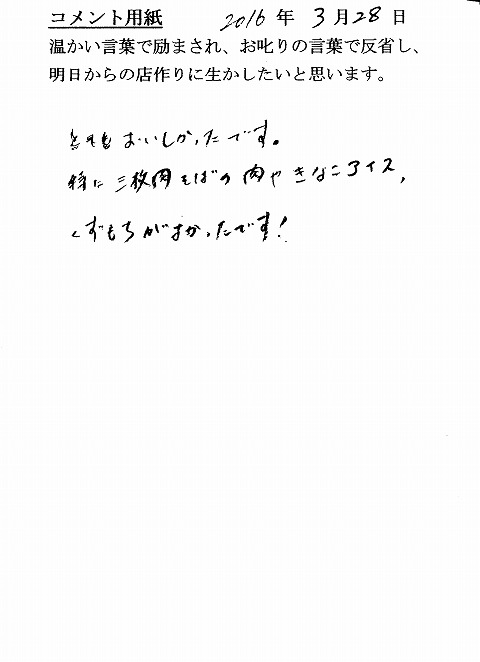 コメント用紙 2016 年 3月28日
温かい言葉で励まされ、お叱りの言葉で反省し、
明日からの店作りに生かしたいと思います。
おいしかったです。
特に三枚肉そばの肉やきなこアイス,
くずもちがよかったです!